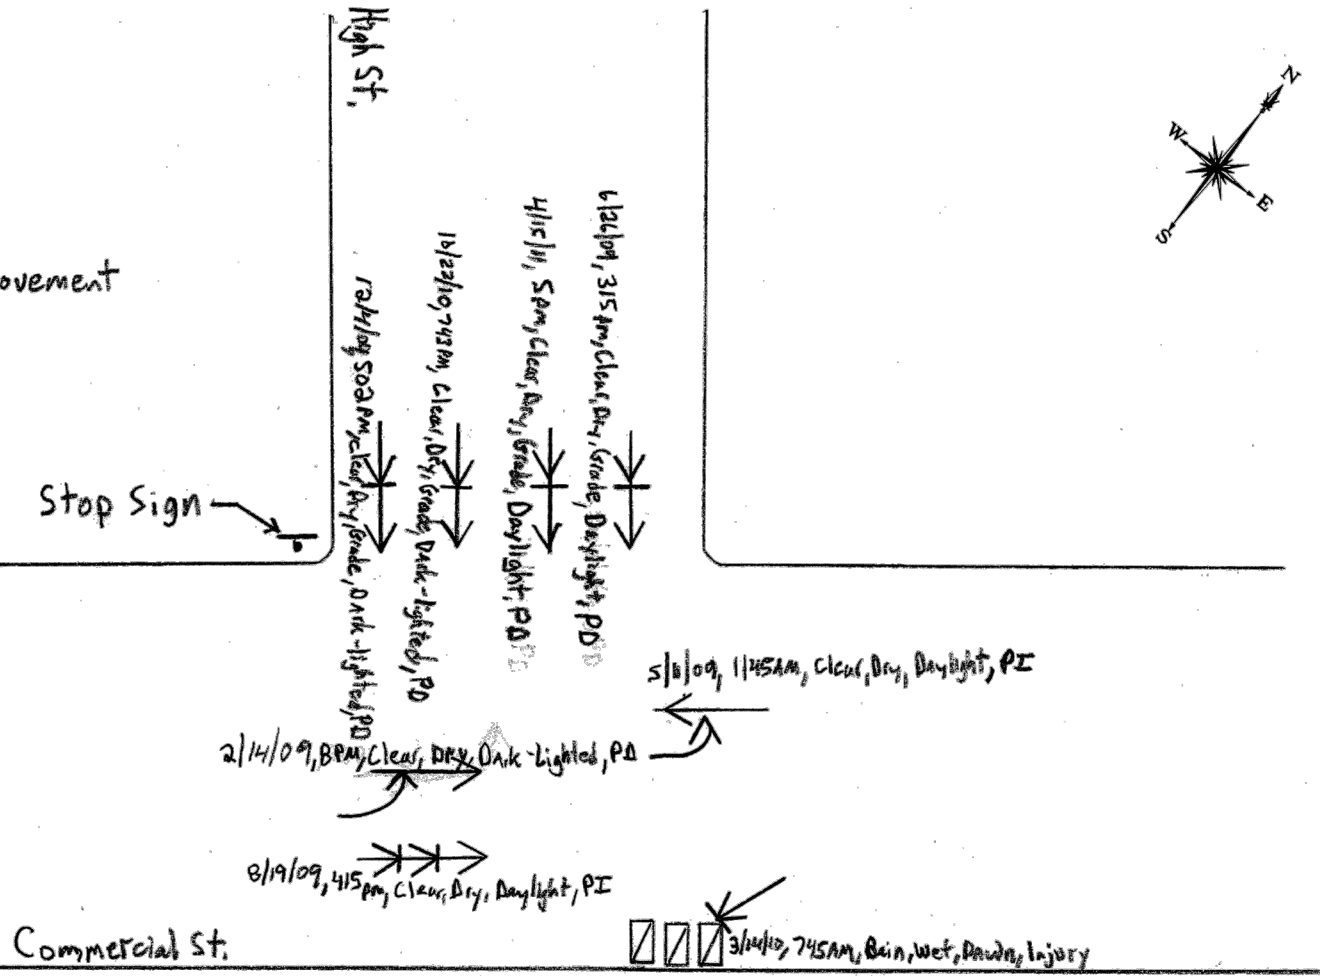 High St.
N
W
E
S
ovement
12/4/09, 502PM, Clear, Dry, Grade, Dark-lighted, PD
10/22/10, 743PM, Clear, Dry, Grade, Dark-lighted, PD
4/15/11, 5PM, Clear, Dry, Grade, Daylight, PD
6/26/09, 315PM, Clear, Dry, Grade, Daylight, PD
Stop Sign
1145AM, Clear, Dry, Daylight, PI
2/14/09, 8PM, Clear, Dry, Dark-Lighted, PD
8/19/09, 415pm, Clear, Dry, Daylight, PI
Commercial St.
745AM, Rain, Wet, Dawn, Injury